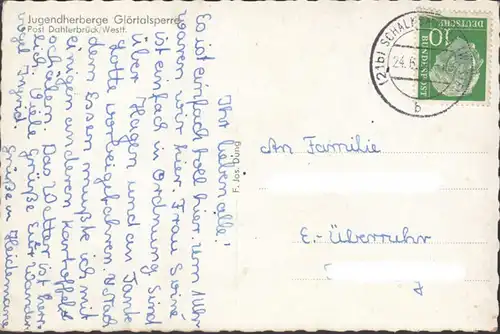 Jugendherberge Glörtalsperre
Post Dahlerbrück/Westf.
Ihr lieben alle!
Es ist einfach toll hier. Um 1 Uhr
waren wir hier. Frau Swine
ist einfach in Ordnung. Sind
über Hagen und an Tante
Lotte vorbeigefahren. Nach
dem Essen mußte ich mit
einigen anderen Kartoffeln
schälen. Das Wetter ist herr-
lich. Viele Grüße Euer Wander-
vogel Ingrid.
Grüße in Heidemarie
F. Jos. Dung
(21b) SCHALKSMÜHLE
24.6.
b
10
DEUTSCHE
BUNDESPOST
An Familie
E.-Überruhr